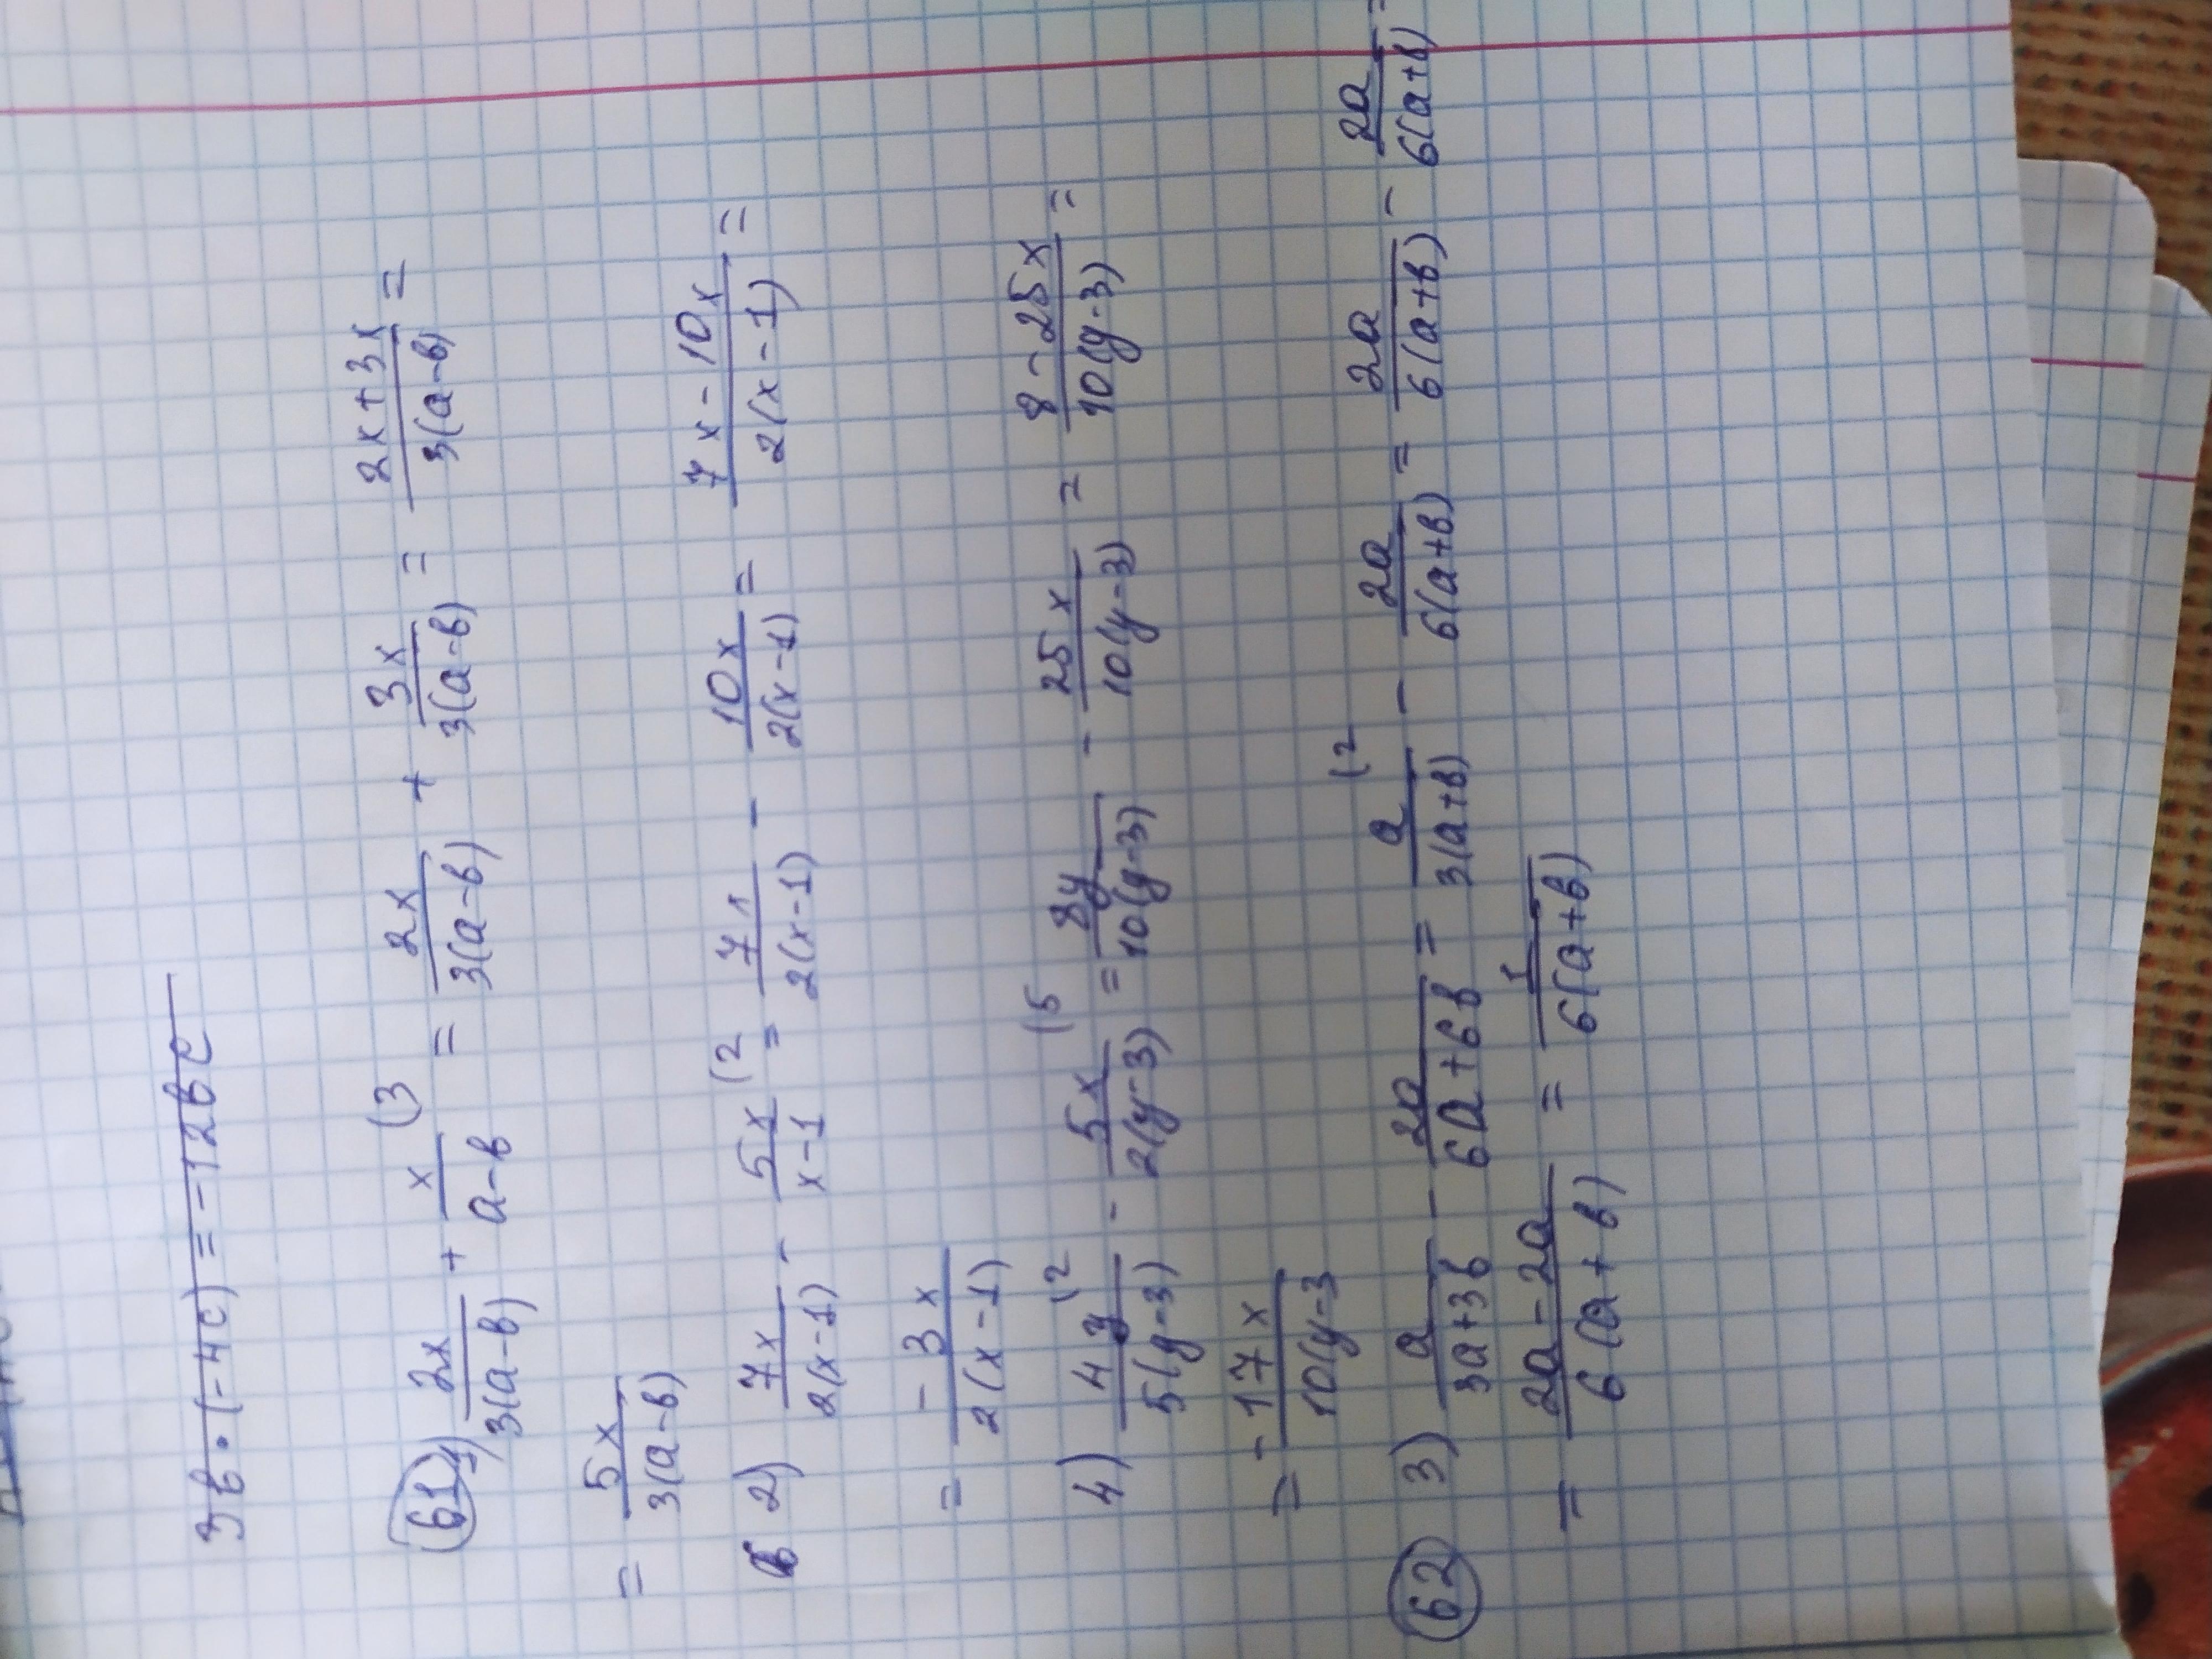 3в · (-4с) = -12вс
61 1) 2x/3(a-в) + x/a-в (3 = 2x/3(a-в) + 3x/3(a-в) = 2x+3x/3(a-в) =
= 5x/3(a-в)
2) 7x/2(x-1) - 5x/x-1 (2 = 7x/2(x-1) - 10x/2(x-1) = 7x-10x/2(x-1) =
= -3x/2(x-1)
4) 4y/5(y-3) (2 - 5x/2(y-3) (5 = 8y/10(y-3) - 25x/10(y-3) = 8-25x/10(y-3) =
= -17x/10(y-3
62 3) a/3a+3в - 2a/6a+6в = a/3(a+в) (2 - 2a/6(a+в) = 2a/6(a+в) - 2a/6(a+в) =
= 2a-2a/6(a+в) = 1/6(a+в)